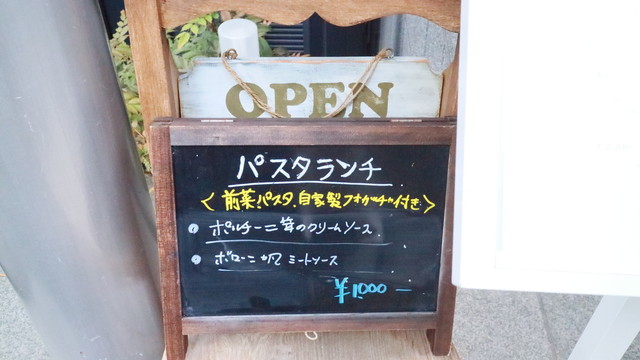 OPEN
パスタランチ
<前菜.パスタ.自家製フォカッチャ付き>
ポルチーニ茸のクリームソース
ボローニャ風 ミートソース
¥1000-